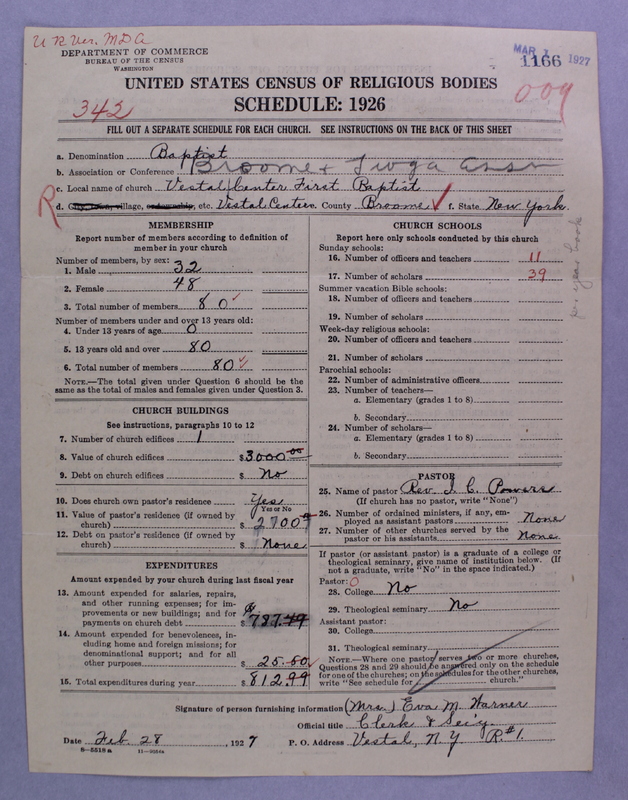 U R Ver. M D A
DEPARTMENT OF COMMERCE
BUREAU OF THE CENSUS
WASHINGTON
MAR 1 1927
1166
UNITED STATES CENSUS OF RELIGIOUS BODIES
342
SCHEDULE: 1926
009
FILL OUT A SEPARATE SCHEDULE FOR EACH CHURCH. SEE INSTRUCTIONS ON THE BACK OF THIS SHEET
a. Denomination Baptist
b. Association or Conference Broome & Tioga Assn
c. Local name of church Vestal Center First Baptist
R
d. City, town, village, township, etc. Vestal Center. County Broome f. State New York.
MEMBERSHIP
Report number of members according to definition of
member in your church
Number of members, by sex:
1. Male 32
2. Female 48
3. Total number of members 80
Number of members under and over 13 years old:
4. Under 13 years of age 0
5. 13 years old and over 80
6. Total number of members 80
NOTE.—The total given under Question 6 should be the
same as the total of males and females given under Question 3.
CHURCH BUILDINGS
See instructions, paragraphs 10 to 12
7. Number of church edifices 1
8. Value of church edifices $3000.00
9. Debt on church edifices $ No
10. Does church own pastor's residence Yes
Yes or No
11. Value of pastor's residence (if owned by
church) $ 2700
12. Debt on pastor's residence (if owned by
church) $ None
EXPENDITURES
Amount expended by your church during last fiscal year
13. Amount expended for salaries, repairs,
and other running expenses; for im-
provements or new buildings; and for
payments on church debt $ 787.49
14. Amount expended for benevolences, in-
cluding home and foreign missions; for
denominational support; and for all
other purposes $ 25.50
15. Total expenditures during year $ 812.99
CHURCH SCHOOLS
Report here only schools conducted by this church
Sunday schools:
16. Number of officers and teachers 11
17. Number of scholars 39
Summer vacation Bible schools:
18. Number of officers and teachers
19. Number of scholars
Week-day religious schools:
20. Number of officers and teachers
21. Number of scholars
Parochial schools:
22. Number of administrative officers
23. Number of teachers—
a. Elementary (grades 1 to 8)
b. Secondary
24. Number of scholars—
a. Elementary (grades 1 to 8)
b. Secondary
per year book
PASTOR
25. Name of pastor Rev. J. C. Powers
(If church has no pastor, write "None")
26. Number of ordained ministers, if any, em-
ployed as assistant pastors None
27. Number of other churches served by the
pastor or his assistants None
If pastor (or assistant pastor) is a graduate of a college or
theological seminary, give name of institution below. (If
not a graduate, write "No" in the space indicated.)
Pastor: 0
28. College No
29. Theological seminary No
Assistant pastor:
30. College
31. Theological seminary
NOTE.—Where one pastor serves two or more churches,
Questions 28 and 29 should be answered only on the schedule
for one of the churches; on the schedules for the other churches,
write "See schedule for church."
Signature of person furnishing information (Mrs.) Eva M. Warner
Official title Clerk & Sec'y.
Date Feb. 28, 1927 P. O. Address Vestal, N. Y R.#1.
8-5518a 11-9064a